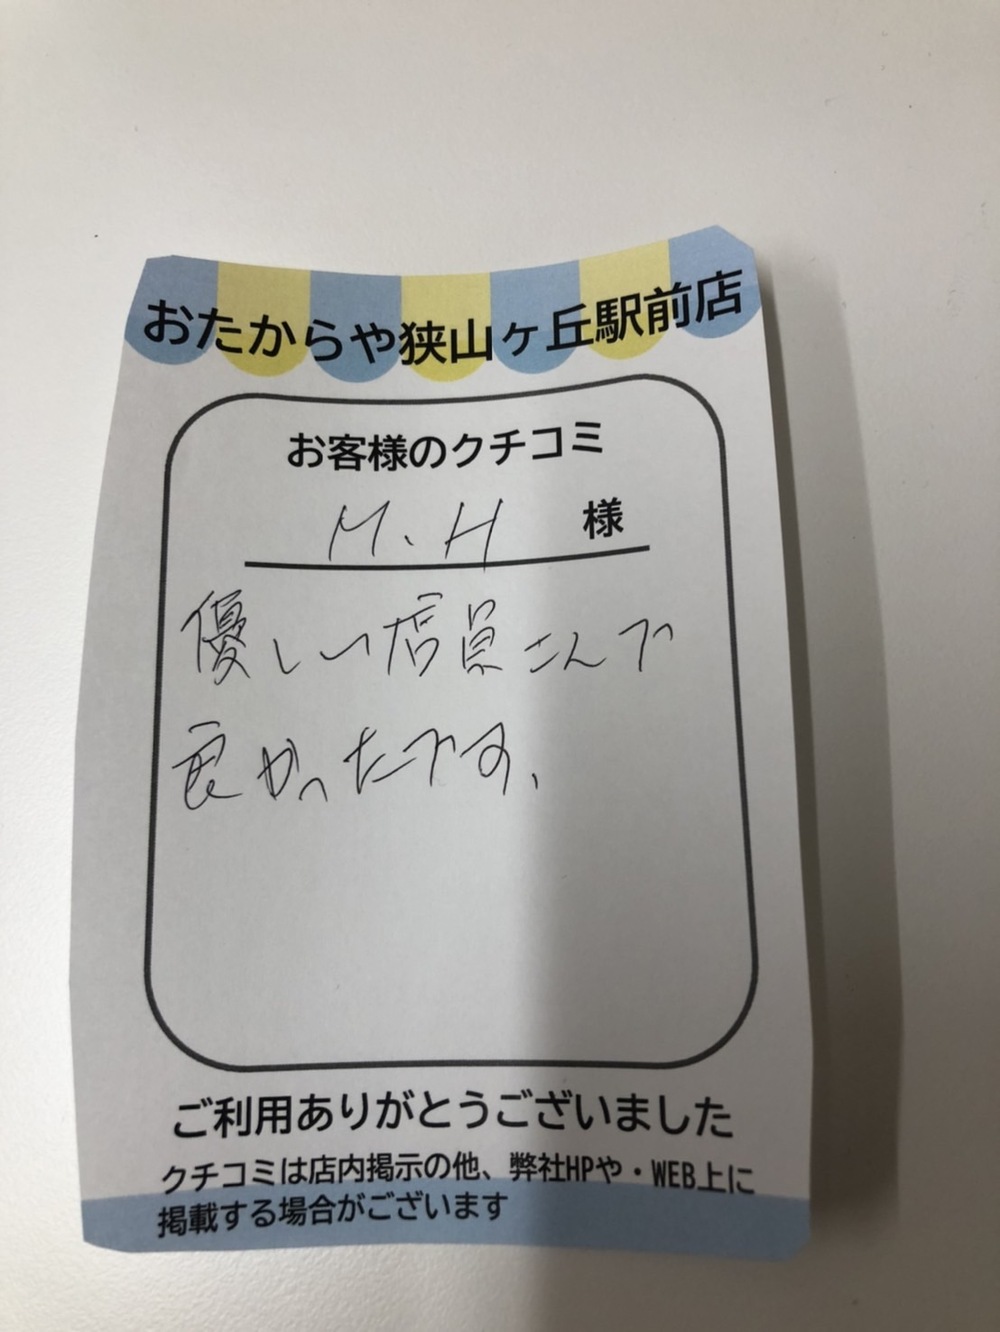 おたからや狭山ヶ丘駅前店
お客様のクチコミ
M.H 様
優しい店員さんで
良かったです、
ご利用ありがとうございました
クチコミは店内掲示の他、弊社HPや・WEB上に
掲載する場合がございます